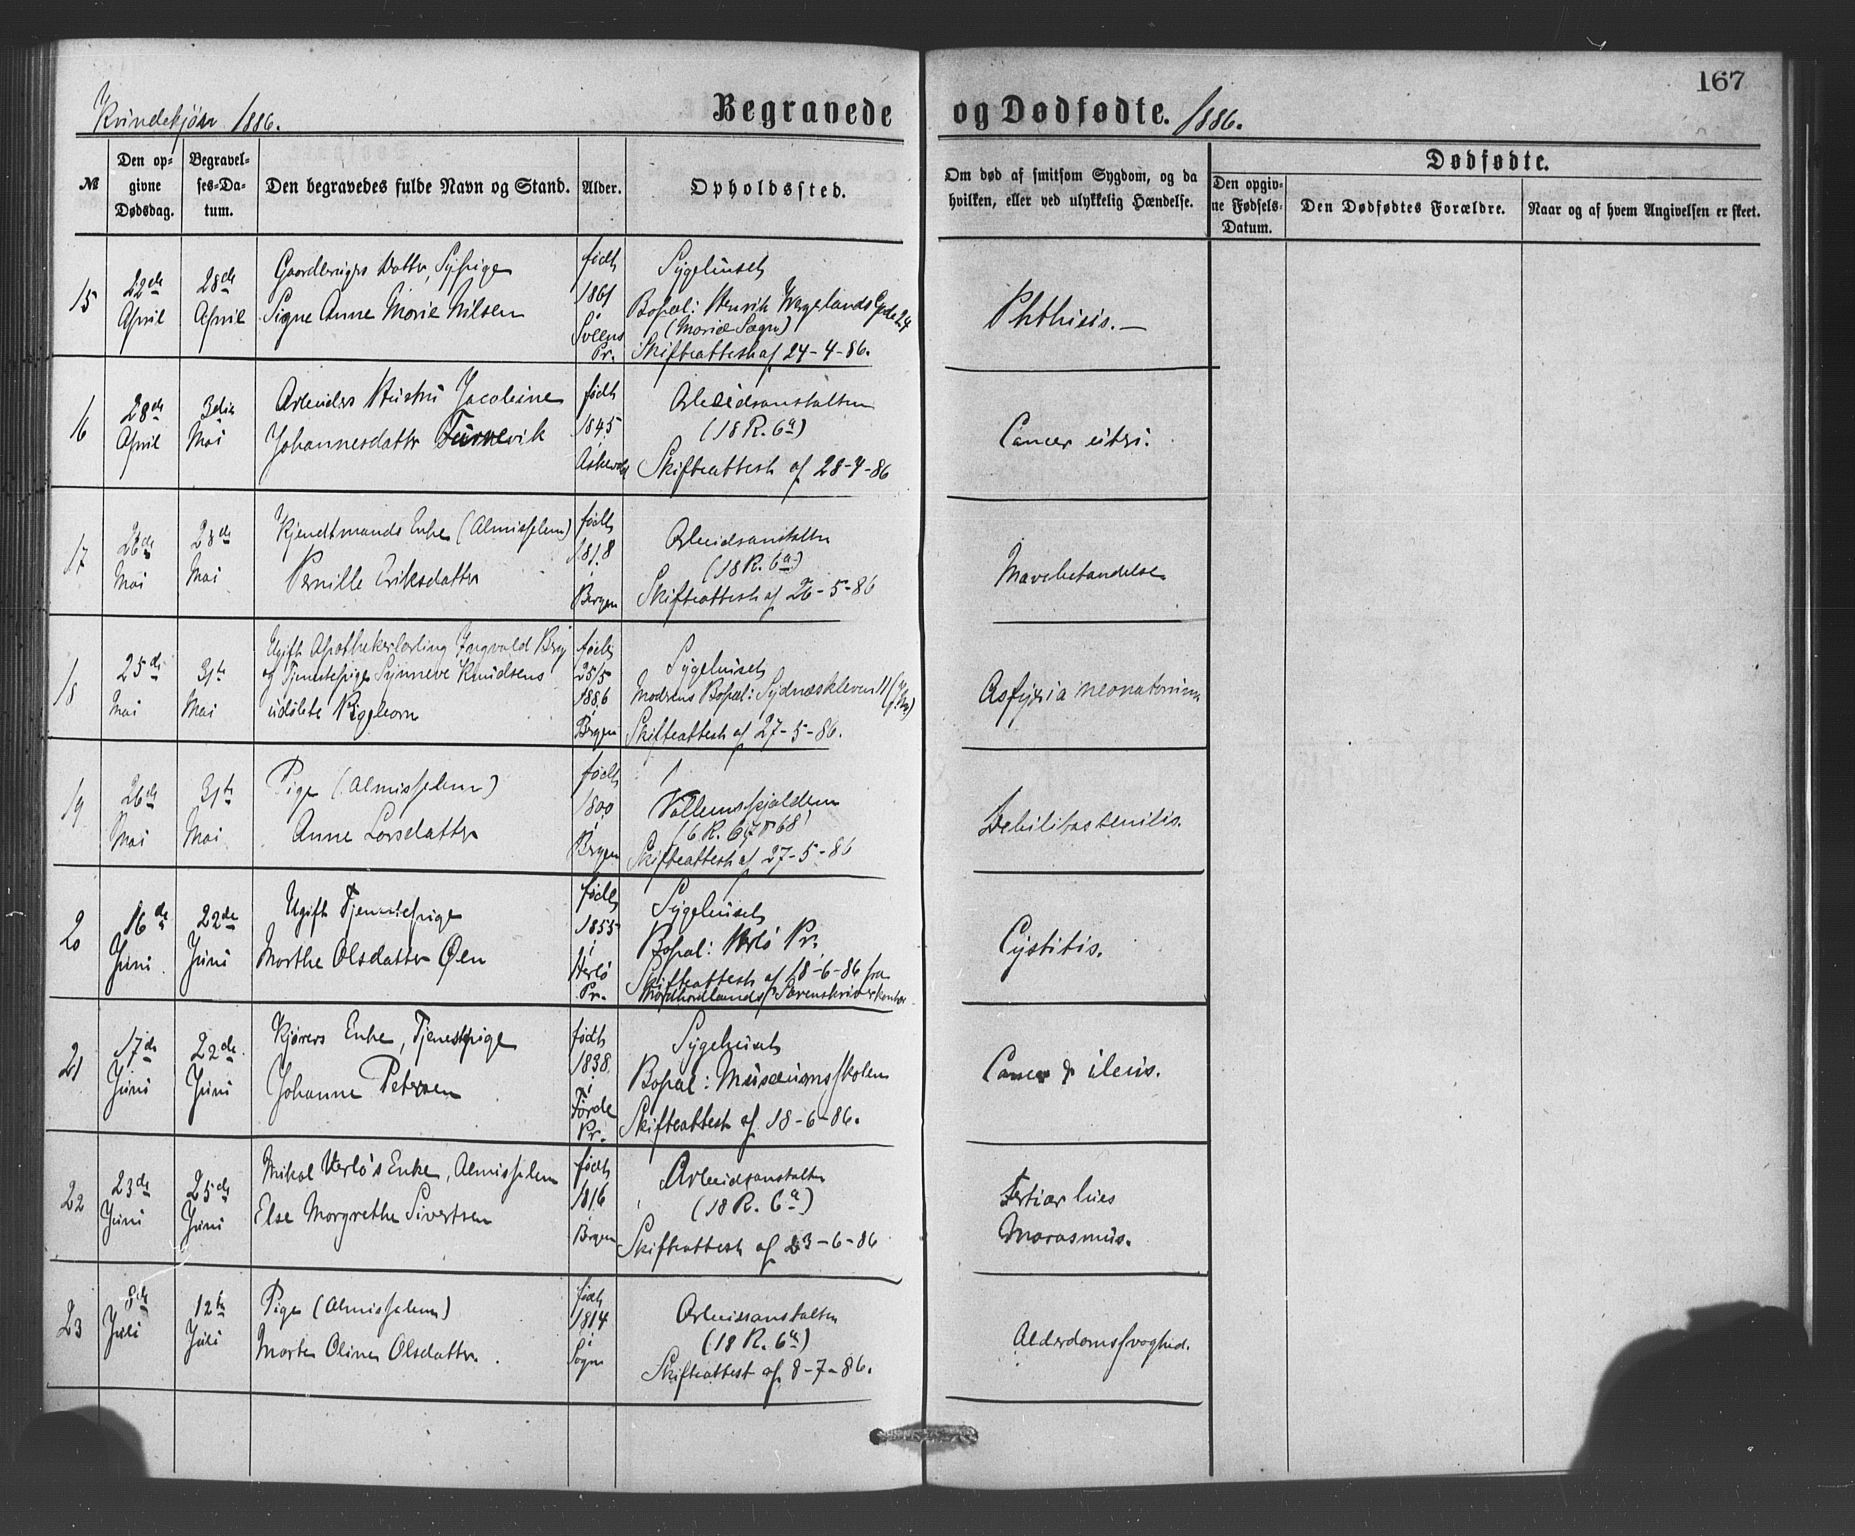 167
Kvindekjøn 1886.
Begravede og Dødfødte. 1886.
Dødfødte.
№
Den opgivne Dødsdag.
Begravelses-Datum.
Den begravedes fulde Navn og Stand.
Alder.
Opholdssted.
Om død af smitsom Sygdom, og da hvilken, eller ved ulykkelig Hændelse.
Den opgivne Fødsels-Datum.
Den Dødfødtes Forældre.
Naar og af hvem Angivelsen er skeet.
15
22de April
28de April
Datter, Sypige
Signe Anne Marie Nilsen
født 1861 i Pr.
Sygehuset
Bopæl: Henrik Wergelands Gade 24
(Mariæ Sogn)
Skifteattest af 24-4-86.
Phthisis.—
16
28de April
3die Mai
Arbeiders Hustru Jacobine
Johannesdatter
født 1845 i Askevold
Arbeidsanstalten
(18 R. 6a)
Skifteattest af 28-4-86
Cancer uteri.
17
26de Mai
28de Mai
Enke (Almisselem)
Pernille Eriksdatter
født 1818 i Bergen
Arbeidsanstalten
(18 R. 6a)
Skifteattest af 26-5-86
Mavebetændelse
18
25de Mai
31te Mai
Ugift Apothekerlærling Ingvald
og Tjenestepige Synneve Knudsens
udøbte Pigebarn
født 25/5 1886 i Bergen
Sygehuset
Moderens Bopæl: Sydnæskleven 11
Skifteattest af 27-5-86.
Asfyxia neonatorum
19
26de Mai
31te Mai
Pige (Almisselem)
Anne Larsdatter
født 1800 i Bergen
(6 R. 67 & 68)
Skifteattest af 27-5-86
Debilitas senilis.
20
16de Juni
22de Juni
Ugift Tjenestepige
Marthe Olsdatter Øen
født 1855 i Herlø Pr.
Sygehuset
Bopæl: Herlø Pr.
Skifteattest af 18-6-86 fra
Nordhordlands Sorenskriverkontor
Cystitis.
21
17de Juni
22de Juni
Kjørers Enke, Tjenestpige
Johanne Petersen
født 1838 i Førde Pr.
Sygehuset
Bopæl: Musæumsskolen
Skifteattest af 18-6-86.
Cancer & ileus.
22
23de Juni
25de Juni
Mikal Herlø's Enke, Almisselem
Else Margrethe Sivertsen
født 1816 i Bergen
Arbeidsanstalten
(18 R. 6a)
Skifteattest af 23-6-86
Tertiær lues
Marasmus.
23
8de Juli
12te Juli
Pige (Almisselem)
Marte Oline Olsdatter.
født 1814 i Sogn
Arbeidsanstalten
(18 R. 6a)
Skifteattest af 8-7-86.
Alderdomssvaghed.